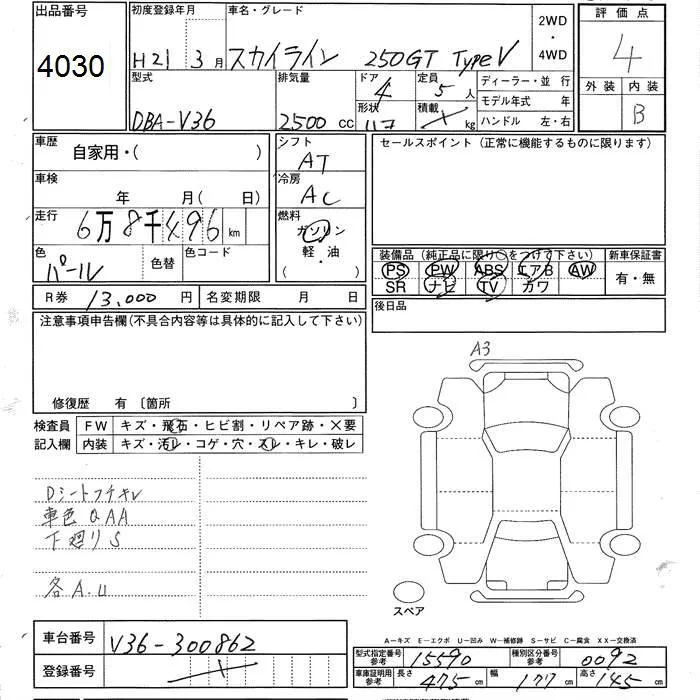 出品番号
4030
初度登録年月
H21 3月
車名・グレード
スカイライン 250GT TypeV
2WD
・
4WD
評価点
4
外装 内装
B
型式
DBA-V36
排気量
2500 cc
ドア
4
形状
ハコ
定員
5人
積載
kg
ディーラー・並行
モデル年式 年
ハンドル 左・右
車歴
自家用・( )
シフト
AT
セールスポイント (正常に機能するものに限ります)
車検
年 月( 日)
冷房
AC
走行
6万8千496km
燃料
ガソリン
軽・油
( ・ )
色
パール
色替
色コード
装備品 (純正品に限り○をつけて下さい)
PS PW ABS エアB AW
SR ナビ TV カワ
新車保証書
有・無
R券 13,000 円
名変期限 月 日
後日品
注意事項申告欄(不具合内容等は具体的に記入して下さい)
修復歴 有 〔箇所 〕
検査員
記入欄
FW キズ・飛石・ヒビ割・リペア跡・×要
内装 キズ・汚レ・コゲ・穴・スレ・キレ・破レ
A3
Dシートフチキレ
車色QAA
下廻りS
各A.U
スペア
A—キズ E—エクボ U—凹み W—補修跡 S—サビ C—腐食 XX—交換済
車台番号 V36-300862
登録番号
型式指定番号
参考
15590
種別区分番号
参考
0092
車庫証明用
参考
長さ 475cm
幅 177cm
高さ 145cm